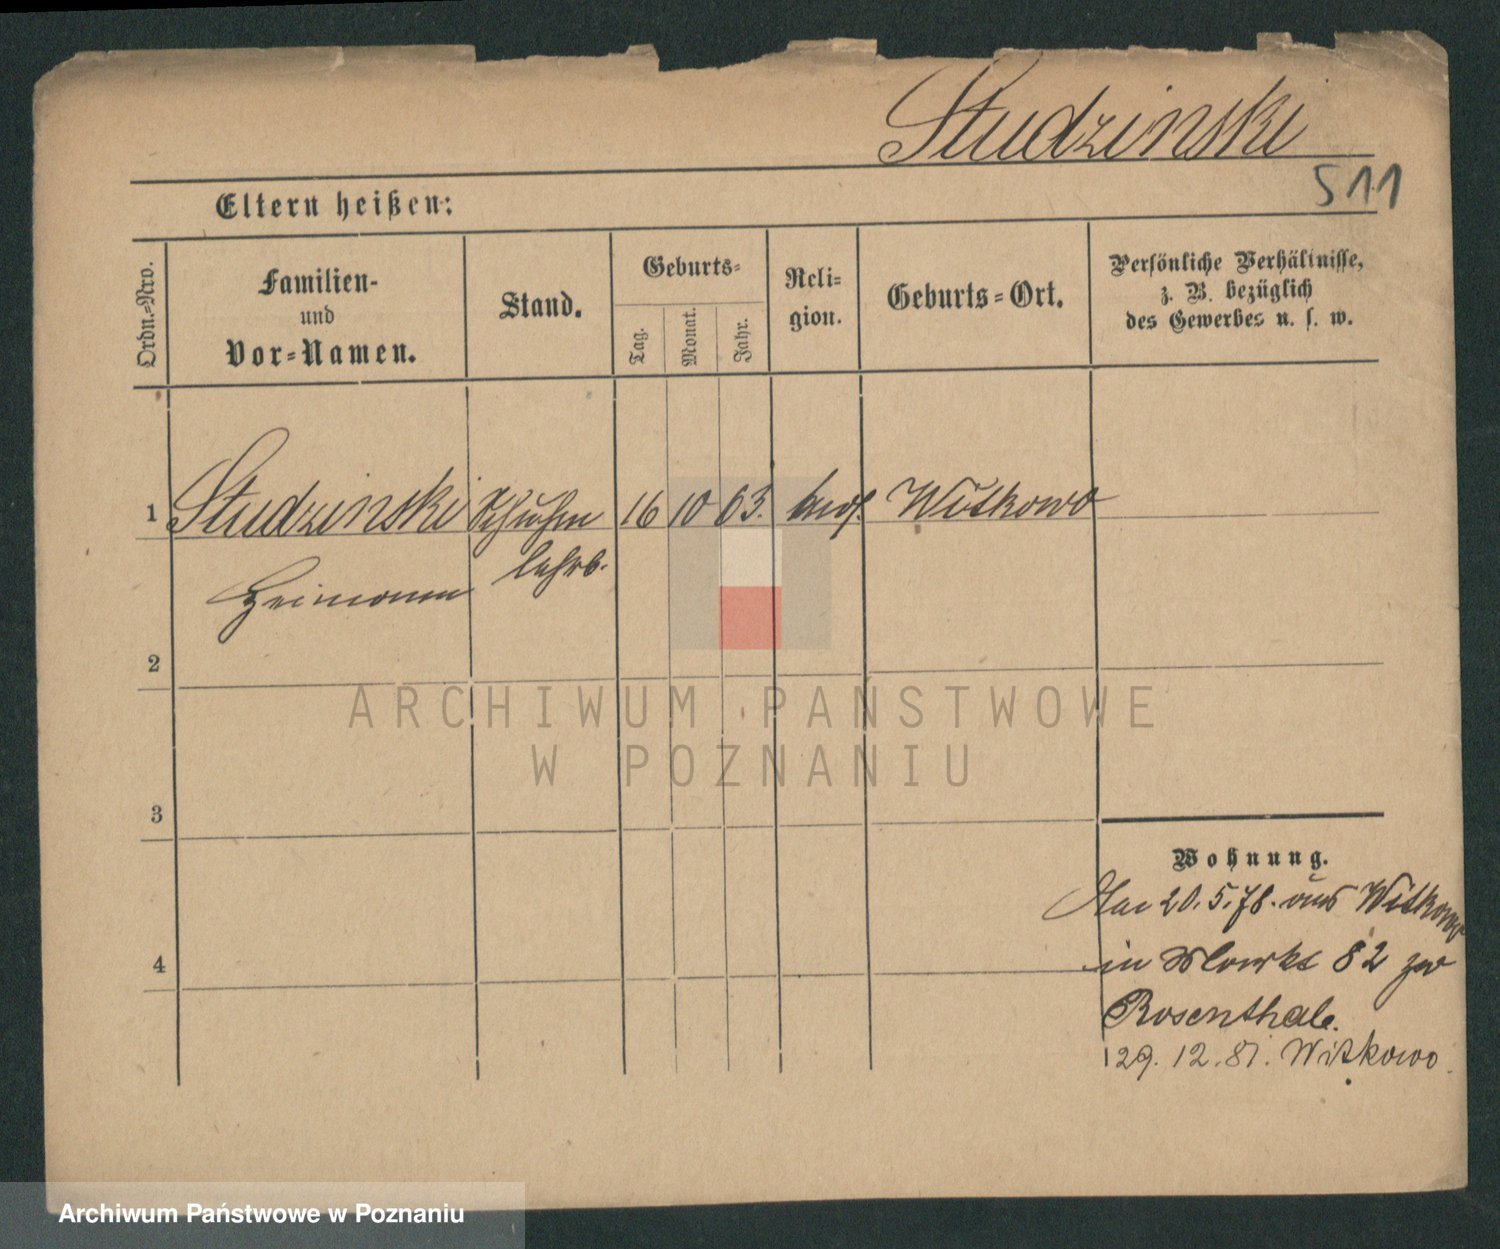 Studzinski
511
Eltern heißen:
Ordn.=Nro.
Familien-
und
Vor=Namen.
Stand.
Geburts=
Tag.
Monat.
Jahr.
Reli-
gion.
Geburts=Ort.
Persönliche Verhältnisse,
z. B. bezüglich
des Gewerbes u. s. w.
1 Studzinski 16 10 63. Witkowo
lehrb.
2
3
4
Wohnung.
20.5.78. aus Witkowo
in Markt 82 zu
Rosenthale.
29. 12. 81. Witkowo.
ARCHIWUM PANSTWOWE
W POZNANIU
Archiwum Państwowe w Poznaniu